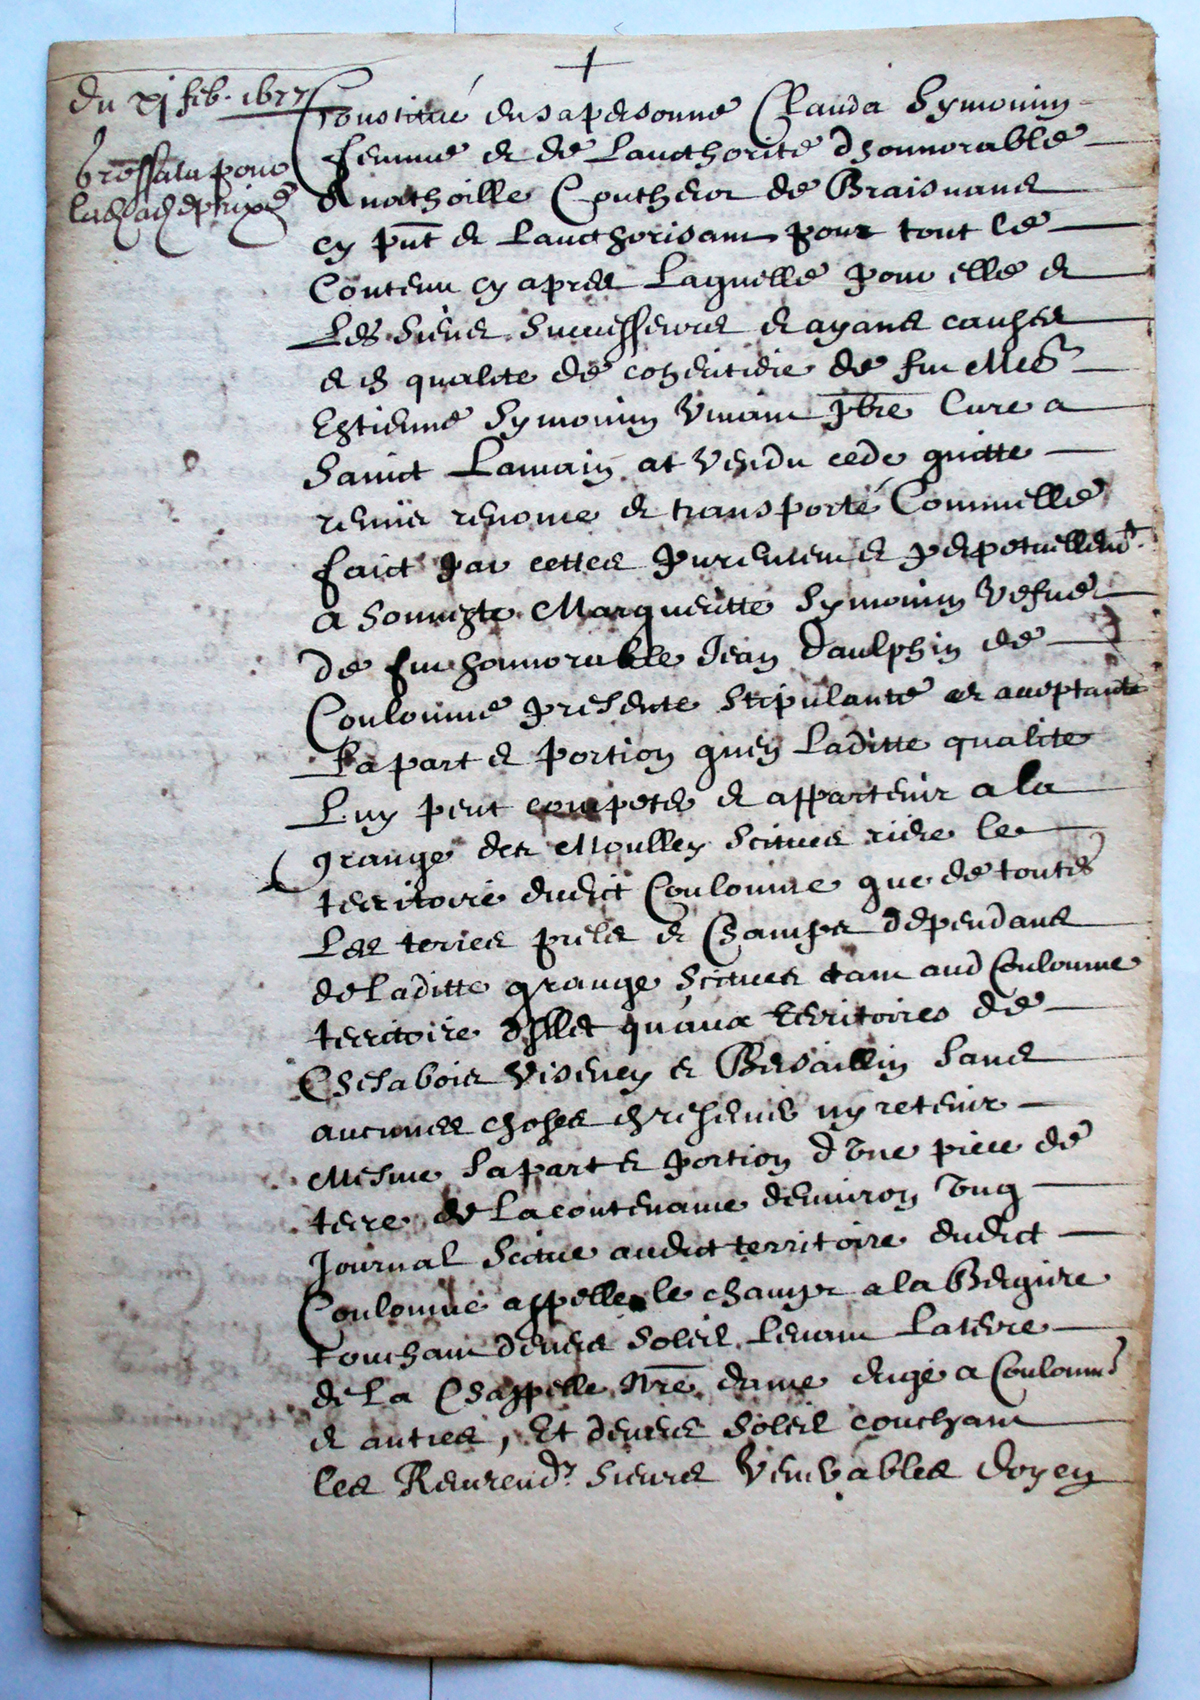 +
du xj feb. 1677
pour
Constitué en sa personne Clauda Symonin
femme et de Lauthorité dhonnorable
Anathoille Couthier de Braisnans
cy pnt et Lauthorisant pour tout le
Contenu cy apres Laquelle pour elle et
Les Siens Successeurs et ayans causes
et en qualite de coheritiere de fut Mes
Estienne Symonin Vivant pbre Cure a
Sainct Lamain at Vendu cede quitte
remis renonce et transporté Commelle
faict par cettes purement et perpetuellemt
a honneste Margueritte Symonin Vefve
de fut honnorable Jean Daulphin de
Coulonne presente Stipulante et acceptante
Sa part et portion quen Laditte qualite
Luy peut competer et appartenir a la
grange des Moulley Scituee riere le
territoire dudict Coulonne que de toutes
Les terres prels et Champs dependans
de Laditte grange Scitues tant aud Coulonne
territoire dillet quaux territoires de
Chesabois Viseney et Bersaillin Sans
aucunes choses en reserver ny retenir
Mesme Sa part et portion d'une piece de
terre de La contenance denviron Ung
Journal Scitue audict territoire dudict
Coulonne appelle le champt a la Bergiere
touchant devers Soleil Levant La terre
de La Chappelle Nre dame erigé a Coulonne
et autres, Et devers Soleil couchant
les Reverendz Sieurs Venerables doyen